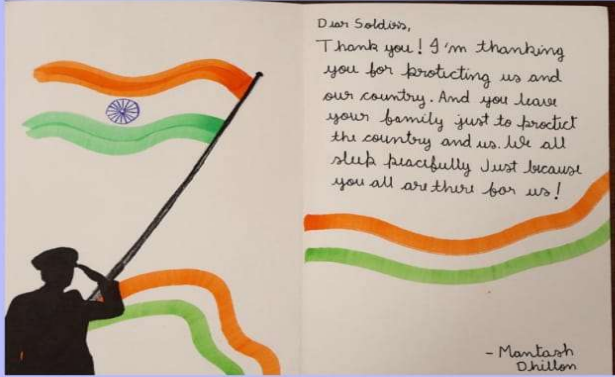 Dear Soldiers,
Thank you! I'm thanking
you for protecting us and
our country. And you leave
your family just to proctict
the country and us. We all
sleep peacefully Just because
you all are there for us!
- Mantash
Dhillon